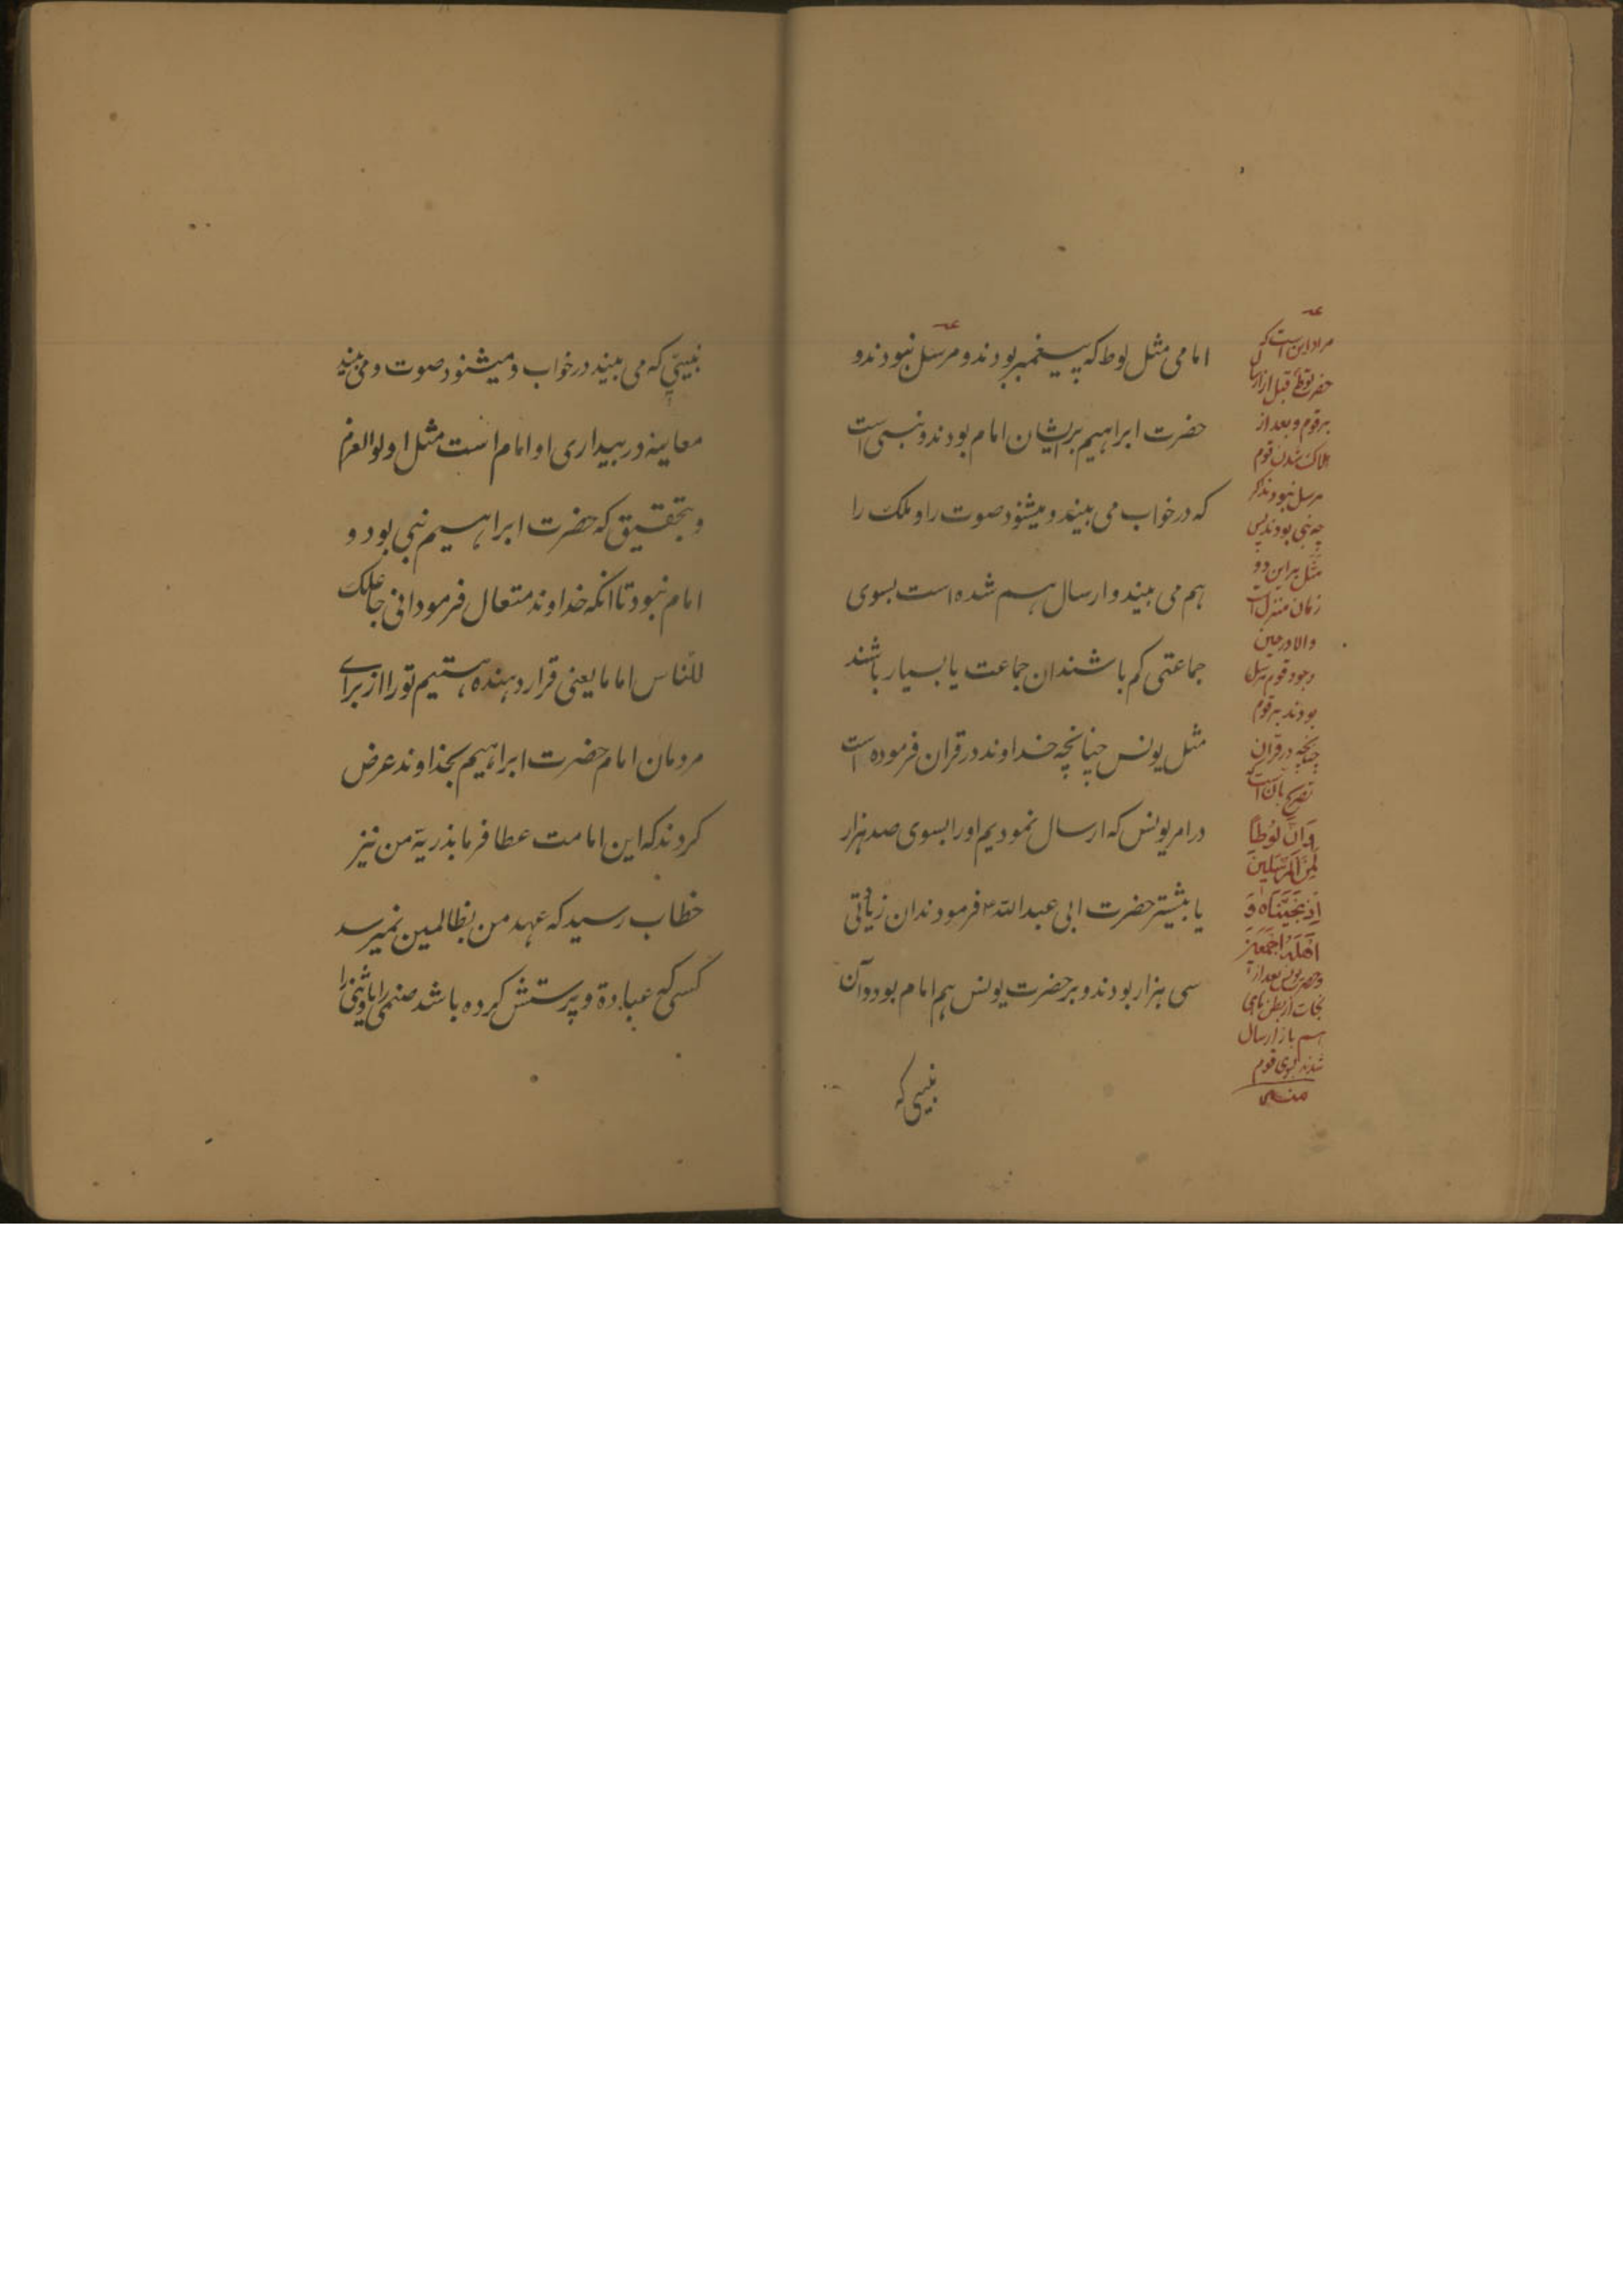 امامی مثل لوط که پیغمبر بودند و مرسل نبودند و
حضرت ابراهیم بر ایشان امام بودند و نبیی است
که در خواب می بیند و میشنود صوت را و ملک را
هم می بیند و ارسال هم شده است بسوی
جماعتی کم باشند ان جماعت یا بسیار باشند
مثل یونس چنانچه خداوند در قران فرموده است
در امر یونس که ارسال نمودیم او را بسوی صد هزار
یا بیشتر حضرت ابی عبد الله ع فرمودند ان زیادتی
سی هزار بودند و بر حضرت یونس هم امام بود و آن
نبیی که
مراد این است که
حضرت لوط قبل از ارسال
بر قوم و بعد از
هلاک شدن قوم
مرسل نبودند اگر
چه نبی بودند پس
مثل بر این دو
زمان منزل است
والا در حین
وجود قوم مرسل
بودند بر قوم
چنانچه در قران
تصریح بان است که
وَاِنَّ لُوطاً
لَمِنَ الْمُرْسَلِینَ
اِذْ نَجَّیْنَاهُ وَ
اَهْلَهُ اَجْمَعِینَ
و حضرت یونس بعد از
نجات از بطن ماهی
هم باز ارسال
شدند بسوی قوم
منه
نبیی که می بیند در خواب و میشنود صوت و می بیند
معاینه در بیداری او امام است مثل اولوالعزم
و بتحقیق که حضرت ابراهیم نبی بود و
امام نبود تا انکه خداوند متعال فرمود انی جاعلک
للناس اماما یعنی قرار دهنده هستیم تو را از برای
مردمان امام حضرت ابراهیم بخداوند عرض
کردند که این امامت عطا فرما بذریة من نیز
خطاب رسید که عهد من بظالمین نمیرسد
کسی که عبادة و پرستش کرده باشد صنمی را یا وثنی را